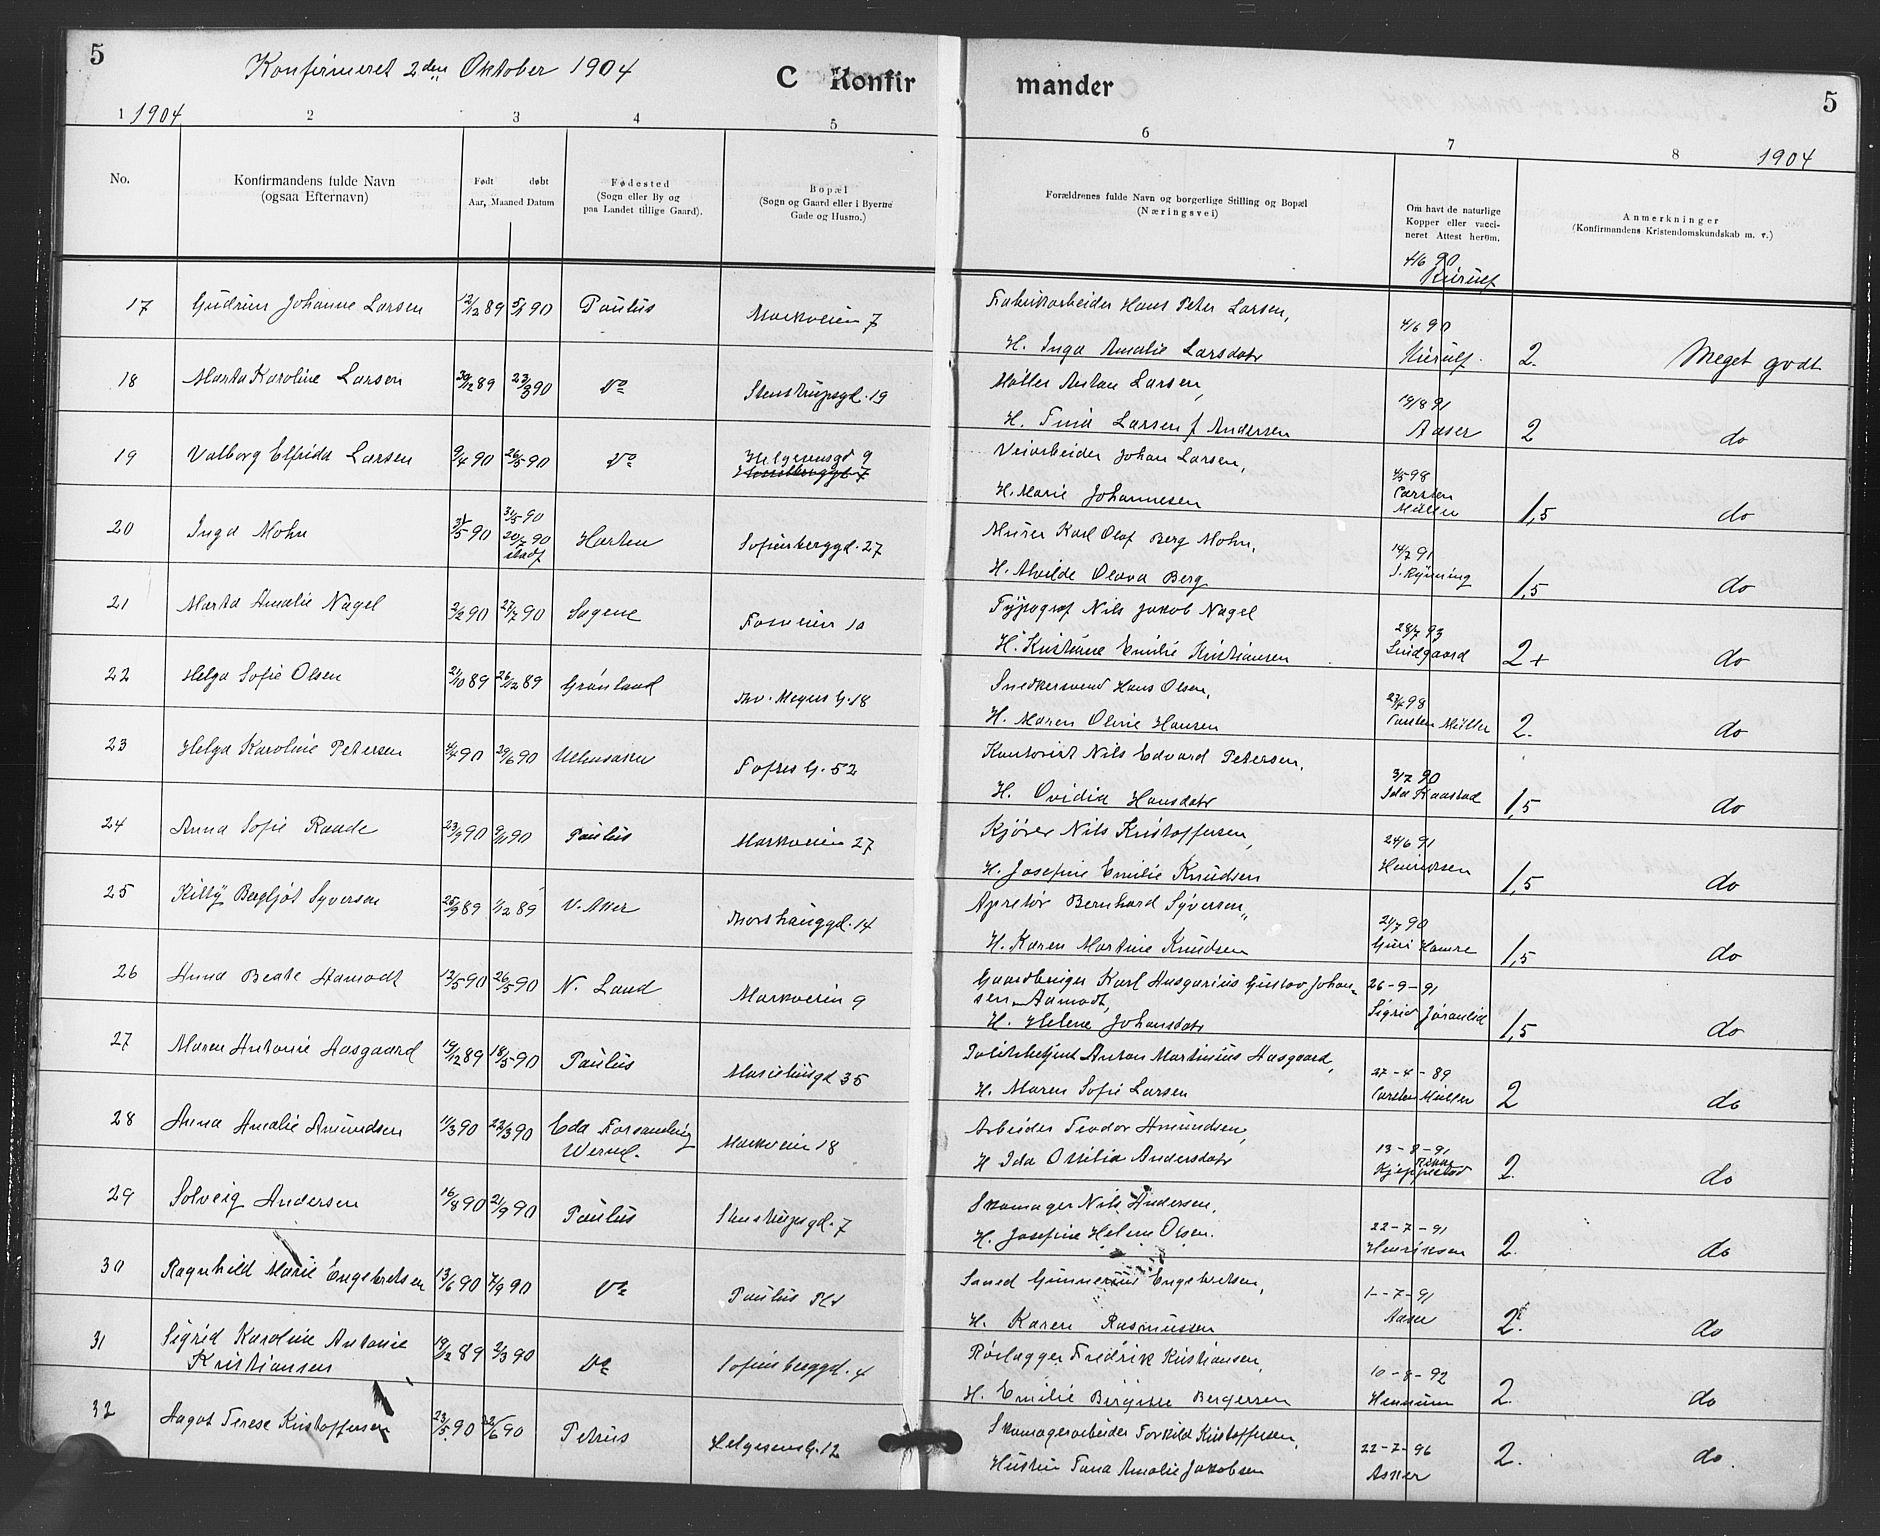 5
Konfirmeret 2den Oktober 1904
C Konfir mander
5
1 1904 2 3 4 5 6 7 8 1904
No.
Konfirmandens fulde Navn
(ogsaa Efternavn)
Født døbt
Aar, Maaned Datum
Fødested
(Sogn eller By og
paa Landet tillige Gaard).
Bopæl
(Sogn og Gaard eller i Byerne
Gade og Husno.)
Forældrenes fulde Navn og borgerlige Stilling og Bopæl
(Næringsvei)
Om havt de naturlige
Kopper eller vacci-
neret Attest herom.
Anmerkninger
(Konfirmandens Kristendomskundskab m. v.)
4/6 90
Kierulf
17 Gudrun Johanne Larsen 12/12 89 5/1 90 Paulus Markveien 7
Fabrikarbeider Hans Peter Larsen,
H. Inga Amalie Larsdatr
4/6 90
Kierulf. 2. Meget godt
18 Marta Karoline Larsen 30/12 89 23/3 90 Do Stenstrupsgd. 19
Møller Anton Larsen,
H. Tina Larsen f Andersen
19/8 91
Aaser 2 do
19 Valborg Elfrida Larsen 9/4 90 26/5 90 Do Helgesensgd 9
Veiarbeider Johan Larsen,
H. Marie Johannesen
4/5 98
Carsten
Müller 1,5 do
20 Inga Mohn 31/5 90 31/5 90
20/7 90
Horten Sofienberggd. 27
Murer Karl Olaf Berg Mohn,
H. Alvilde Olava Berg
14/7 91
J. Rynning 1,5 do
21 Marta Amalie Nagel 2/2 90 27/7 90 Sagene Fossveien 10
Typograf Nils Jakob Nagel
H. Kristiane Emilie Kristiansen
28/7 93
Lindgaard 2+ do
22 Helga Sofie Olsen 21/10 89 26/12 89 Grønland Thv. Meyers G. 18
Snedkersvend Hans Olsen,
H. Maren Oline Hansen
27/4 98
Carsten Müller 2. do
23 Helga Karoline Petersen 4/4 90 29/6 90 Ullensaker Toftes G. 52
Kontorist Nils Edvard Petersen,
H. Ovidia Hansdatr
3/7 90
Ida Kaastad 1,5 do
24 Anna Sofie Raade 23/9 90 9/11 90 Paulus Markveien 27
Kjører Nils Kristoffersen,
H. Josefine Emilie Knudsen
24/6 91
Henriksen 1,5 do
25 Kitty Bergljot Syversen 25/9 89 1/12 89 V. Aker Thorshauggd. 14
Apretør Bernhard Syversen,
H. Karen Martine Knudsen
21/7 90
Guri Hamre 1,5 do
26 Anna Beate Aamodt 12/5 90 26/5 90 N. Land Markveien 9
Gaardbruger Karl Ansgarius Gustav Johan-
sen Aamodt,
H. Helene Johansdatr
26-9-91
Sigrid Joranlid 1,5 do
27 Maren Antonie Aasgaard 19/12 89 18/5 90 Paulus Mariehusgd 35
Politibetjent Anton Martinius Aasgaard,
H. Maren Sofie Larsen
27-4-89
Carsten Müller 2 do
28 Anna Amalie Amundsen 11/3 90 23/3 90 Eda Forsamling
Werml. Markveien 18
Arbeider Teodor Amundsen,
H Ida Ottilia Andersdatr
13-8-91
Rikke
Kjeppestad 2. do
29 Solveig Andersen 16/8 90 21/9 90 Paulus Stenstrupsgd. 7
Skomager Nils Andersen,
H. Josefine Helene Olsen.
22-7-91
Henriksen 2. do
30 Ragnhild Marie Engebretsen 13/6 90 7/9 90 Do Paulus Pl.
Smed Gunnerius Engebretsen,
H. Karen Rasmussen
1-7-91
Aaser 2. do
31 Sigrid Karoline Antonie
Kristiansen 19/12 89 2/3 90 Do Sofienberggd. 4
Rørlægger Fredrik Kristiansen,
H. Emilie Birgitte Bergersen
10-8-92
Hennum 2. do
32 Aagot Terese Kristoffersen 23/5 90 22/6 90 Petrus Helgesens G. 12
Skomagerarbeider Torkild Kristoffersen,
Hustru Tana Amalie Jakobsen
22-7-96
Asker 2. do.